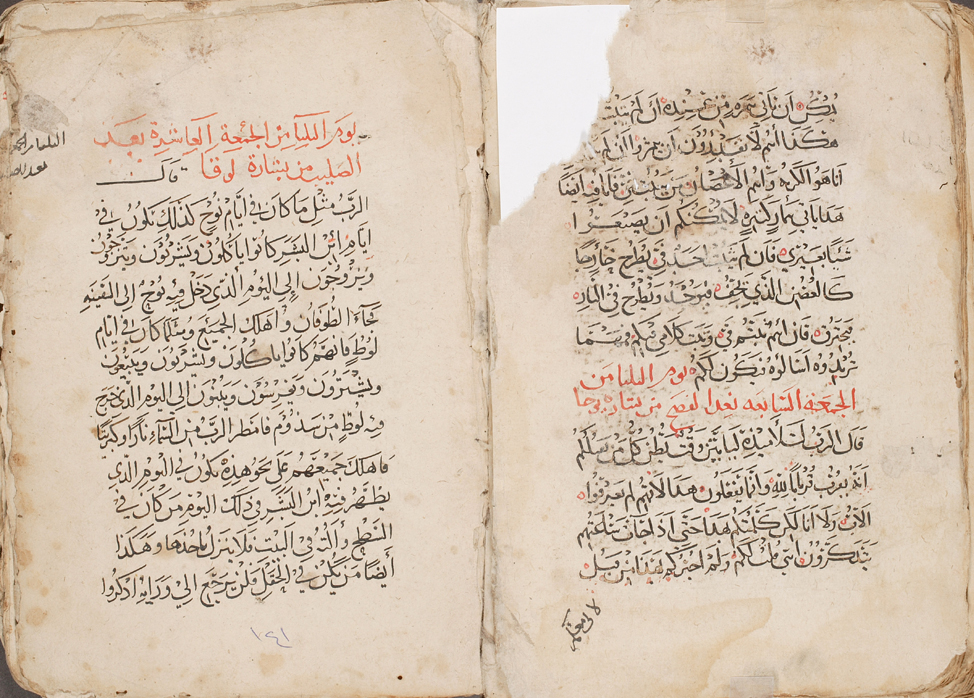 يمكن ان تاتي بثمره من عنده ان لم تثبت
هكذا انتم لا تقدرون ان تثمروا ان لم
انا هو الكرمه وانتم الاغصان من يثبت في وانا فيه ايضاً
هذا ياتي بثمار كثيره لا يمكنكم ان تصنعوا
شياً بغيري فان لم يثبت احد في يطرح خارجا
كالغصن الذي يجف فيوخذ ويطرح في النار
فيحترق فان انتم ثبتم في وثبت كلامي فيكم فمهما
تريدوه اسالوه فيكون لكم يوم الثلثا من
الجمعه السابعه بعد الفصح من بشاره يوحنا
قال الرب لتلاميذه لياتين وقت يظن كل من يقتلكم
انه يقرب قرباناً لله وانما يفعلون هذا لانهم لم يعرفوا
الاب ولا انا لكن كلمتكم هذا حتى اذا جات ساعتهم
تتذكرون انني قلت لكم ولم اخبركم بهذا من قبل
لاني معكم
يوم الثلثا من الجمعة العاشرة بعد
الصليب من بشارة لوقا قال
الرب مثل ما كان في ايام نوح كذلك يكون في
ايام ابن البشر كانوا ياكلون ويشربون ويتزوجون
ويزوجون الي اليوم الذي دخل فيه نوح الى السفينه
فجاء الطوفان واهلك الجميع ومثلما كان في ايام
لوط فانهم كانوا ياكلون ويشربون ويبتغون
ويشترون ويغرسون ويبنون الي اليوم الذي خرج
فيه لوط من سدوم فامطر الرب من السماء ناراً وكبريتاً
فاهلك جميعهم على نحو هذه يكون في اليوم الذي
يظهر فيه ابن البشر في ذلك اليوم من كان في
السطح والته في البيت فلا ينزل ياخدها وهكذا
أيضاً من يكن في الحقل فلن يرجع الي ورايه اذكروا
١٤١